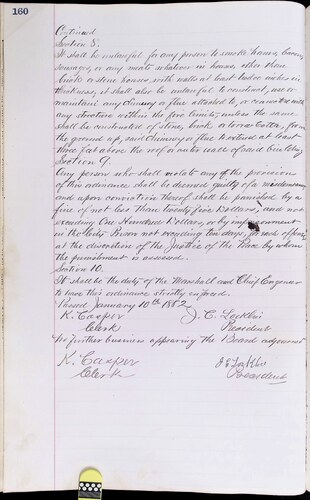 160
Continued
Section 8.
It shall be unlawful for any person to smoke hams, bacon,
sausages, or any meats whatever in houses other than
brick or stone houses, with walls at least twelve inches in
thickness, it shall also be unlawful to construct, use or
maintain any chimney or flue attached to, or connected with
any structure within the fire limits, unless the same
shall be constructed of stone, brick or terra cotta, from
the ground up, said chimney or flue to extend at least
three feet above the roof or outer wall of said building
Section 9.
Any person who shall violate any of the provisions
of this ordinance shall be deemed guilty of a misdemeanor
and upon conviction thereof shall be punished by a
fine of not less than twenty five Dollars, and not
exceeding One Hundred Dollars, or by imprisonment
in the City Prison not exceeding ten days, for each offense
at the discretion of the Justice of the Peace by whom
the punishment is assessed.
Section 10.
It shall be the duty of the Marshall and Chief Engineer
to have this ordinance strictly enforced.
Passed January 10th 1882
K. Casper J. C.
Clerk President
No further business appearing the Board adjourned
K. Casper
Clerk President